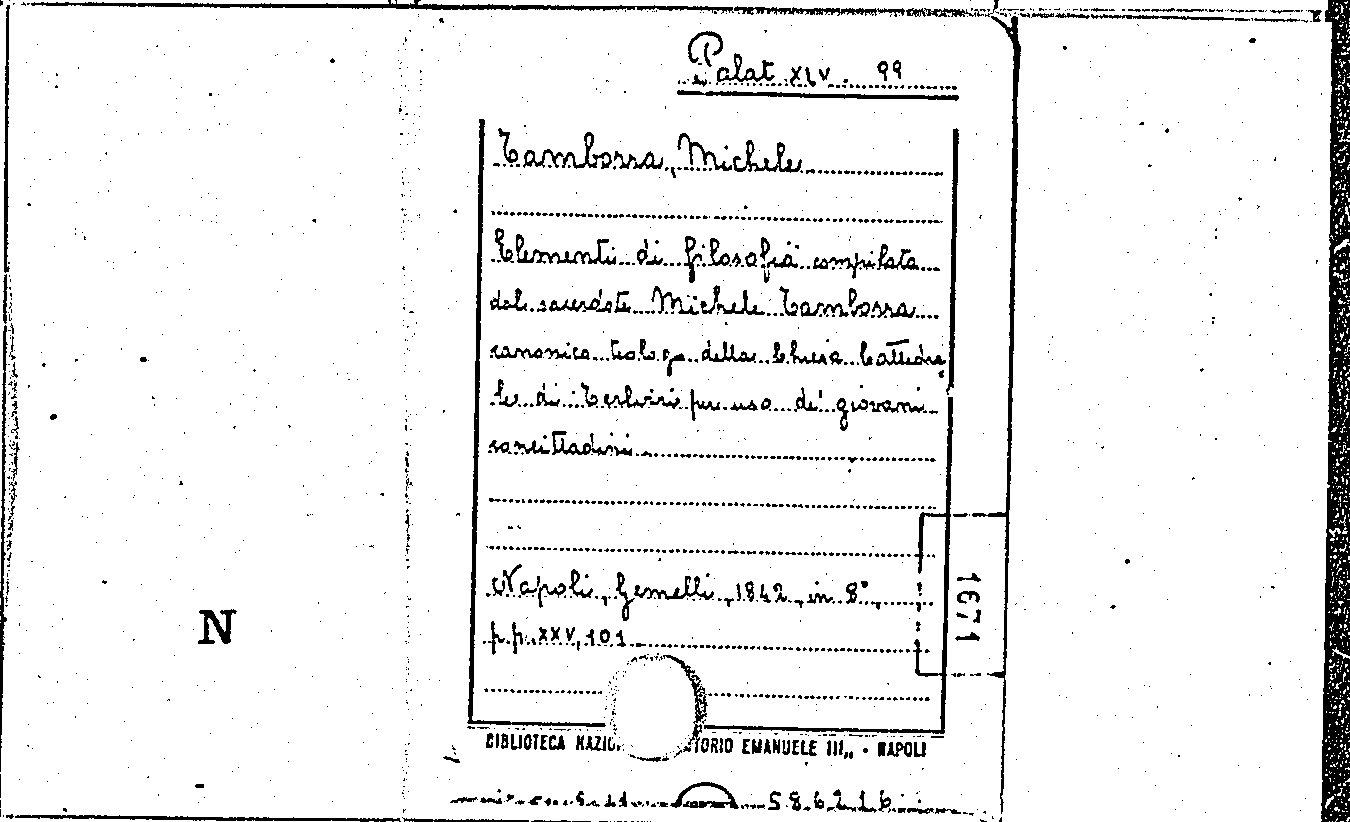 Palat XLV. 99
Tamborra, Michele
Elementi di filosofia compilata
dal sacerdote Michele Tamborra
canonico teologo della Chiesa Cattedra
le di Terlizzi per uso de' giovani
concittadini.
Napoli, Gemelli, 1842, in 8°,
p.p. XXV, 101
1671
N
BIBLIOTECA EMANUELE III„ - NAPOLI
586216